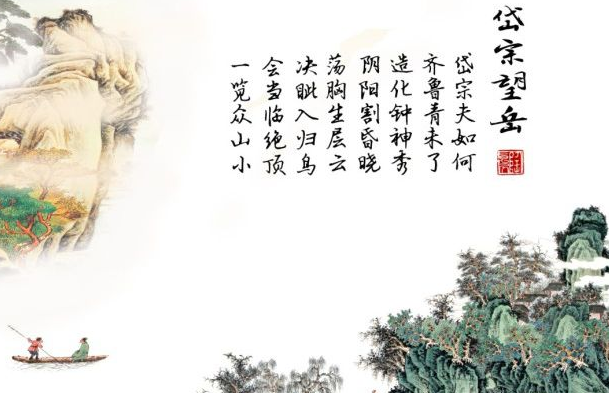 岱宗望岳
岱宗夫如何
齐鲁青未了
造化钟神秀
阴阳割昏晓
荡胸生层云
决眦入归鸟
会当临绝顶
一览众山小